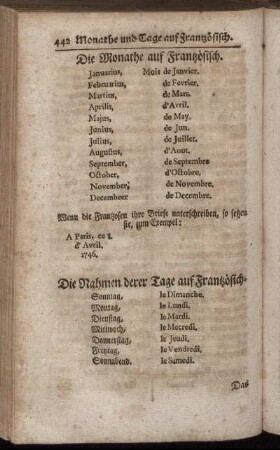 442 Monathe und Tage auf Frantzösisch.
Die Monathe auf Frantzösisch.
Januarius, Mois de Janvier.
Februarius, de Fevrier.
Martius, de Mars.
Aprilis, d'Avril.
Majus, de May.
Junius, de Jun.
Julius, de Juillet.
Augustus, d'Aout.
September, de Septembre
October, d'Octobre.
November, de Novembre.
Decembeer de Decembre.
Wenn die Frantzosen ihre Briefe unterschreiben, so setzen
sie, zum Exempel:
A Paris, ce 8.
d' Avril,
1746.
Die Nahmen derer Tage auf Frantzösich.
Sonntag, le Dimanche.
Montag, le Lundi.
Dienstag, le Mardi.
Mittwoch, le Mecredi.
Donnerstag, le Jeudi.
Freytag, le Vendredi.
Sonnabend. le Samedi.
Das